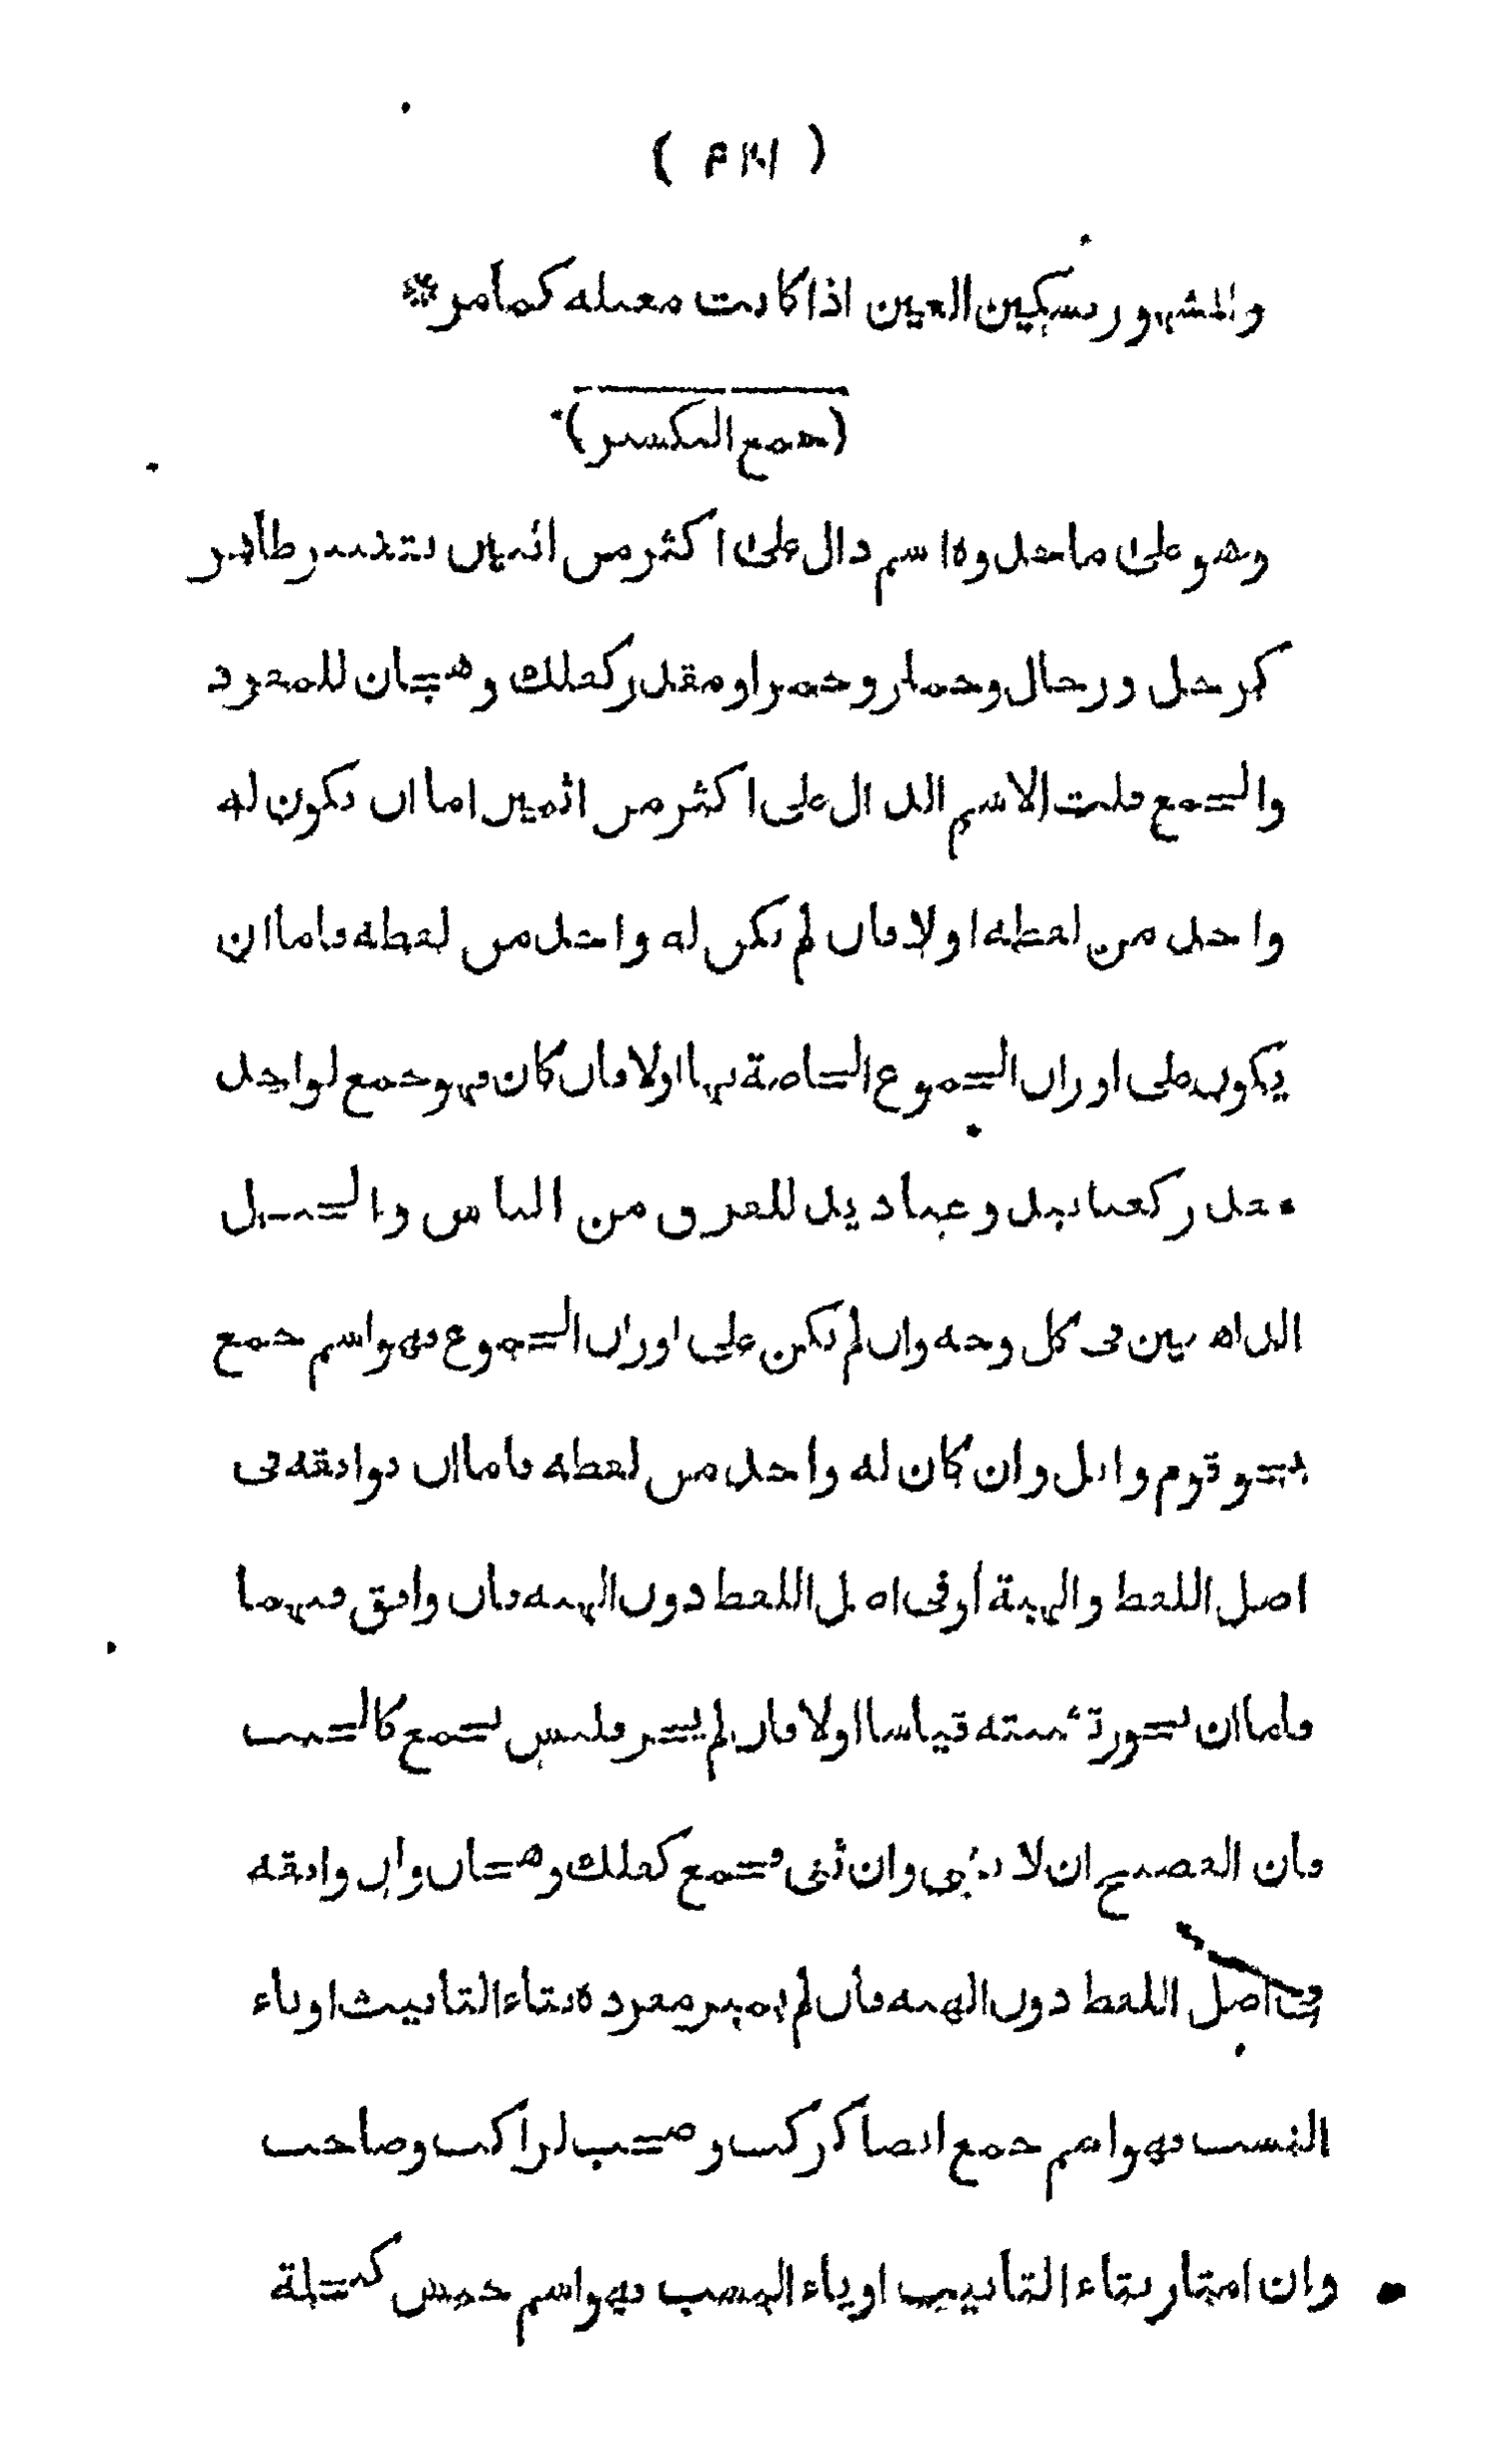 والمشهور تسكين العين اذا كانت معتلة كما مر *
(جمع التكسير)
وهو على ما حدوه اسم دال على اكثر من اثنين بتغيير ظاهر
كرجل ورجال وحمار وحمر او مقدر كفلك وهجان للمفرد
والجمع قلت الاسم الدال على اكثر من اثنين اما ان يكون له
واحد من لفظه اولا فان لم يكن له واحد من لفظه فاما ان
يكون على اوزان الجموع الخاصة بها اولا فان كان فهو جمع لواحد
مقدر كعباديد وعباديد للفرق من الناس والخيل
الذاهبين في كل وجه وان لم يكن على اوزان الجموع فهو اسم جمع
نحو قوم وابل وان كان له واحد من لفظه فاما ان يوافقه في
اصل اللفظ والهيئة او في اصل اللفظ دون الهيئة فان وافق فيهما
فاما ان يجوز تثنيته قياسا اولا فان لم يجز فليس بجمع كالجنب
فان الفصيح ان لا يثنى وان ثني فجمع كفلك وهجان وان وافقه
في اصل اللفظ دون الهيئة فان لم يميز مفرده بتاء التانيث او ياء
النسب فهو اسم جمع ايضا كركب وصحب لراكب وصاحب
وان امتاز بتاء التانيث او ياء النسب فهو اسم جنس كنخلة